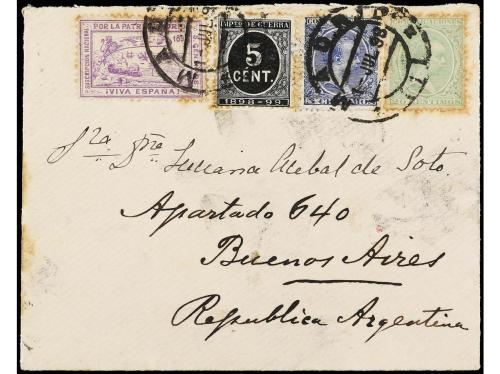 SUSCRIPCION NACIONAL
POR LA PATRIA
¡VIVA ESPAÑA!
IMPTO DE GUERRA
5
CENT.
1898-99
MADRID
Sra Dña Luciana Alebal de Soto
Apartado 640
Buenos Aires
Republica Argentina